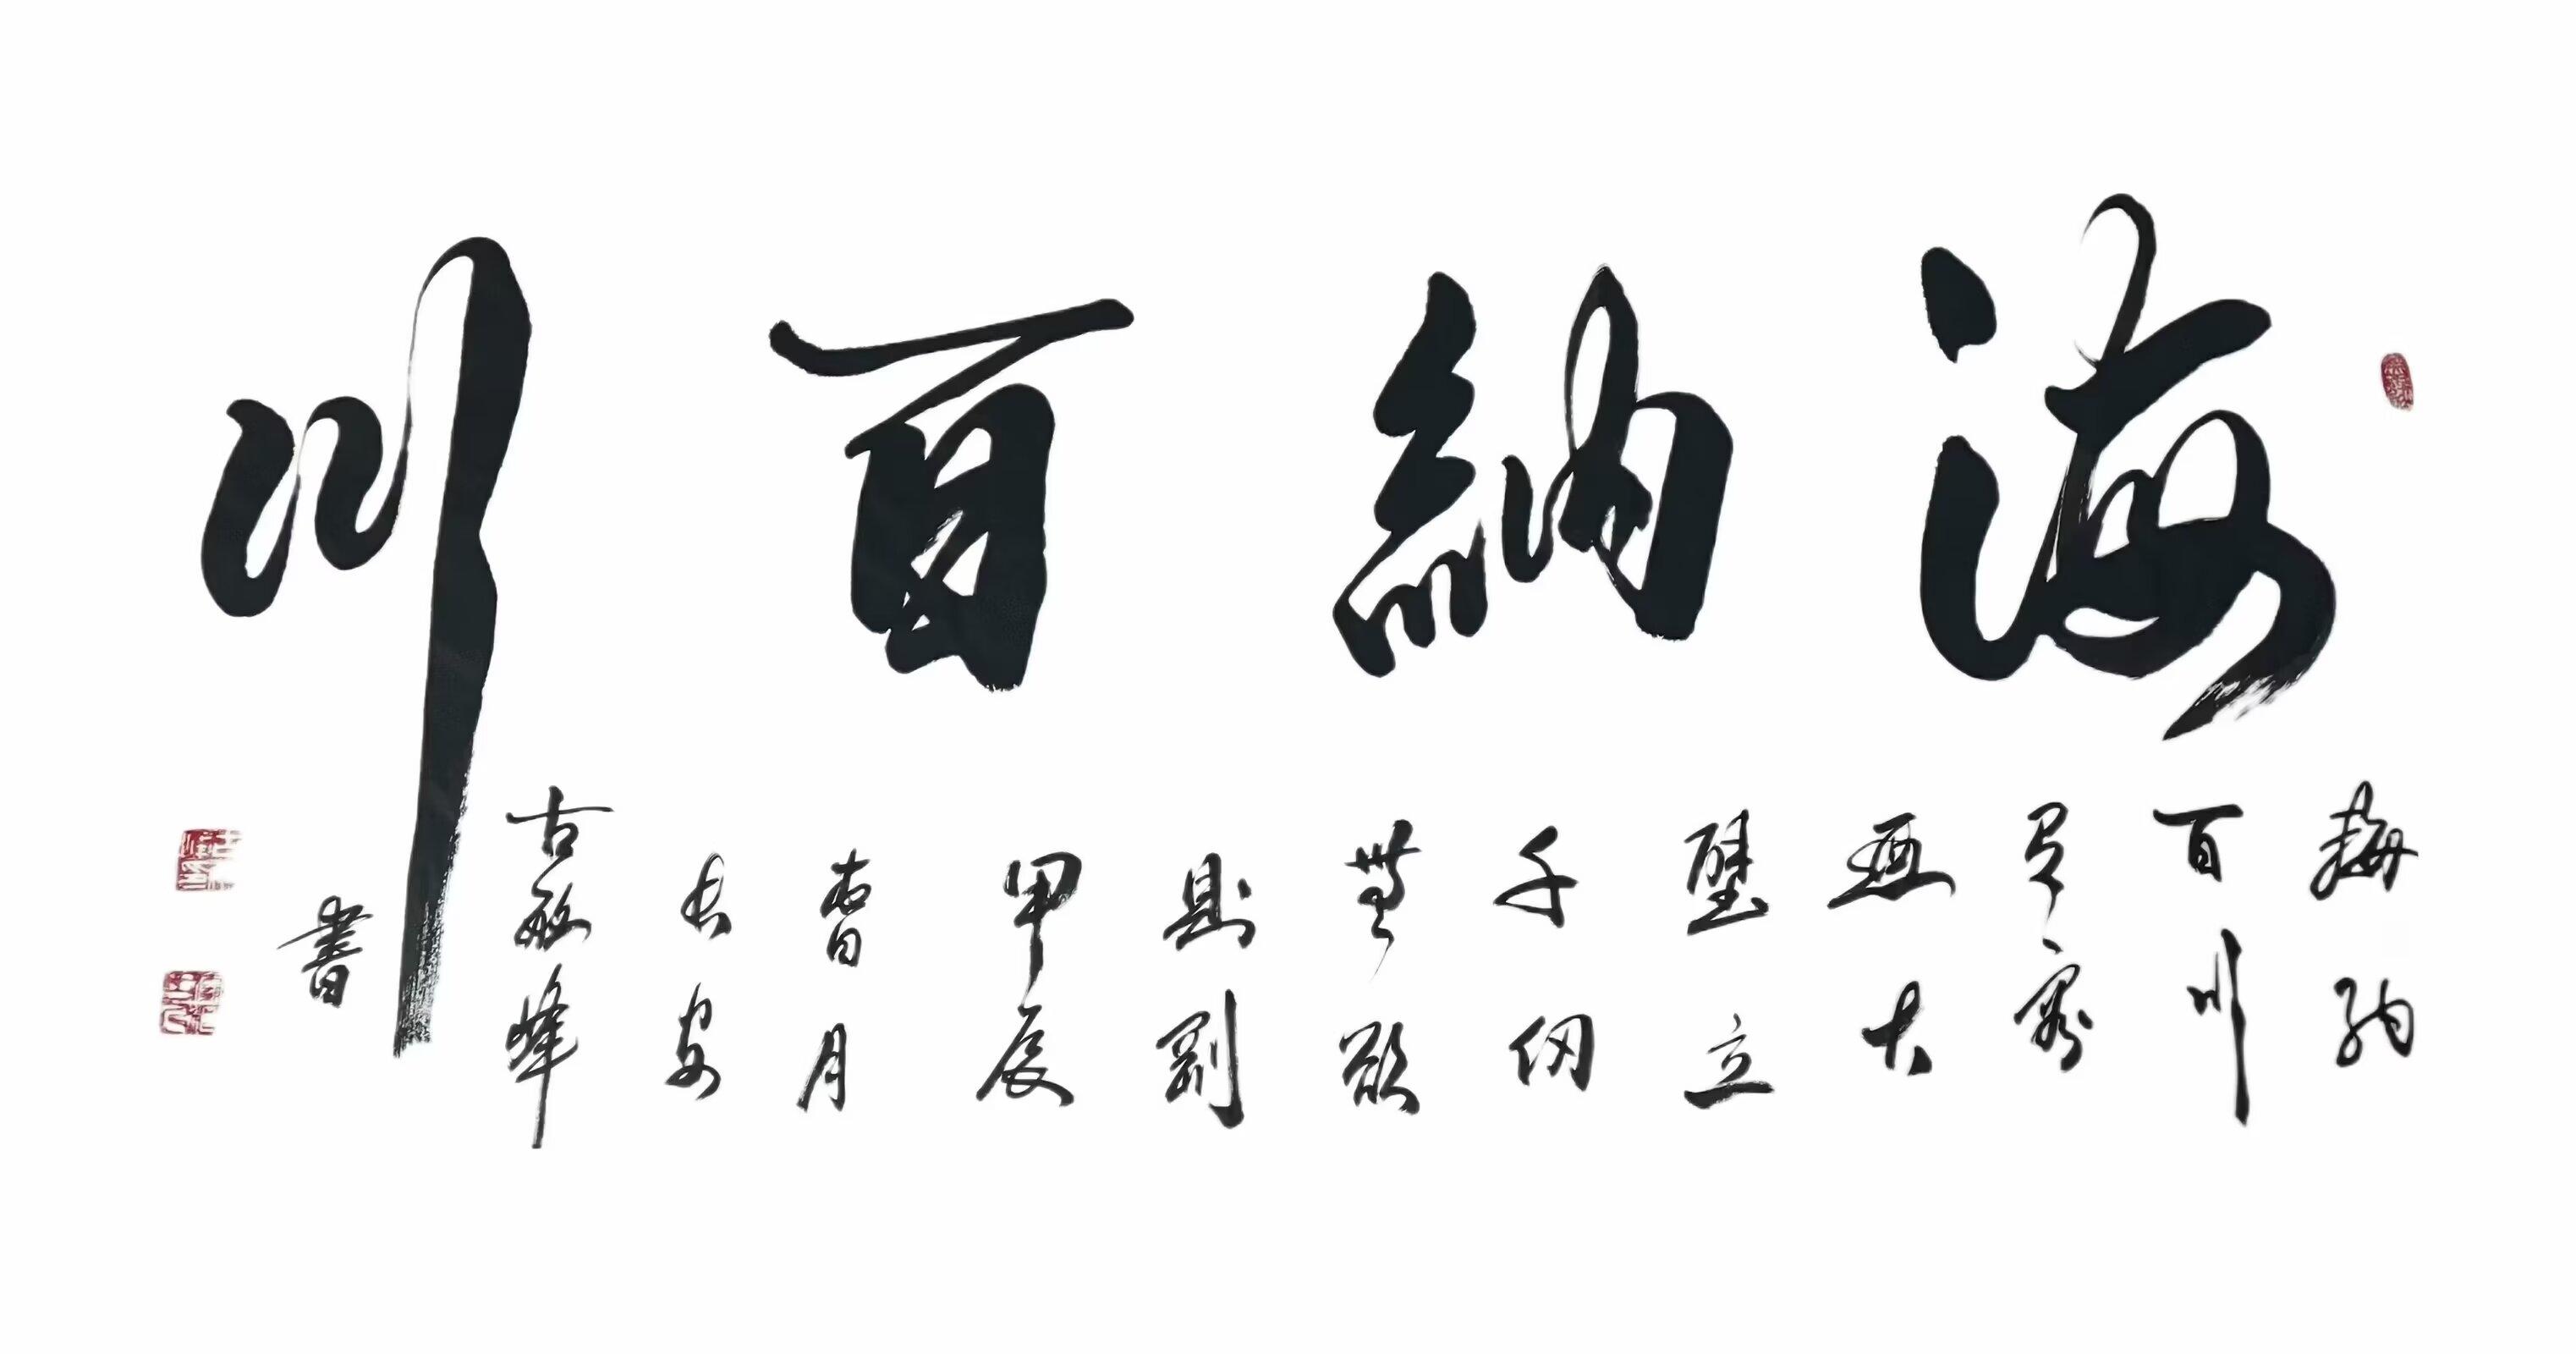 海納百川
海納
百川
有容
迺大
壁立
千仞
無欲
則剛
甲辰
春月
長安
古敏峰
書